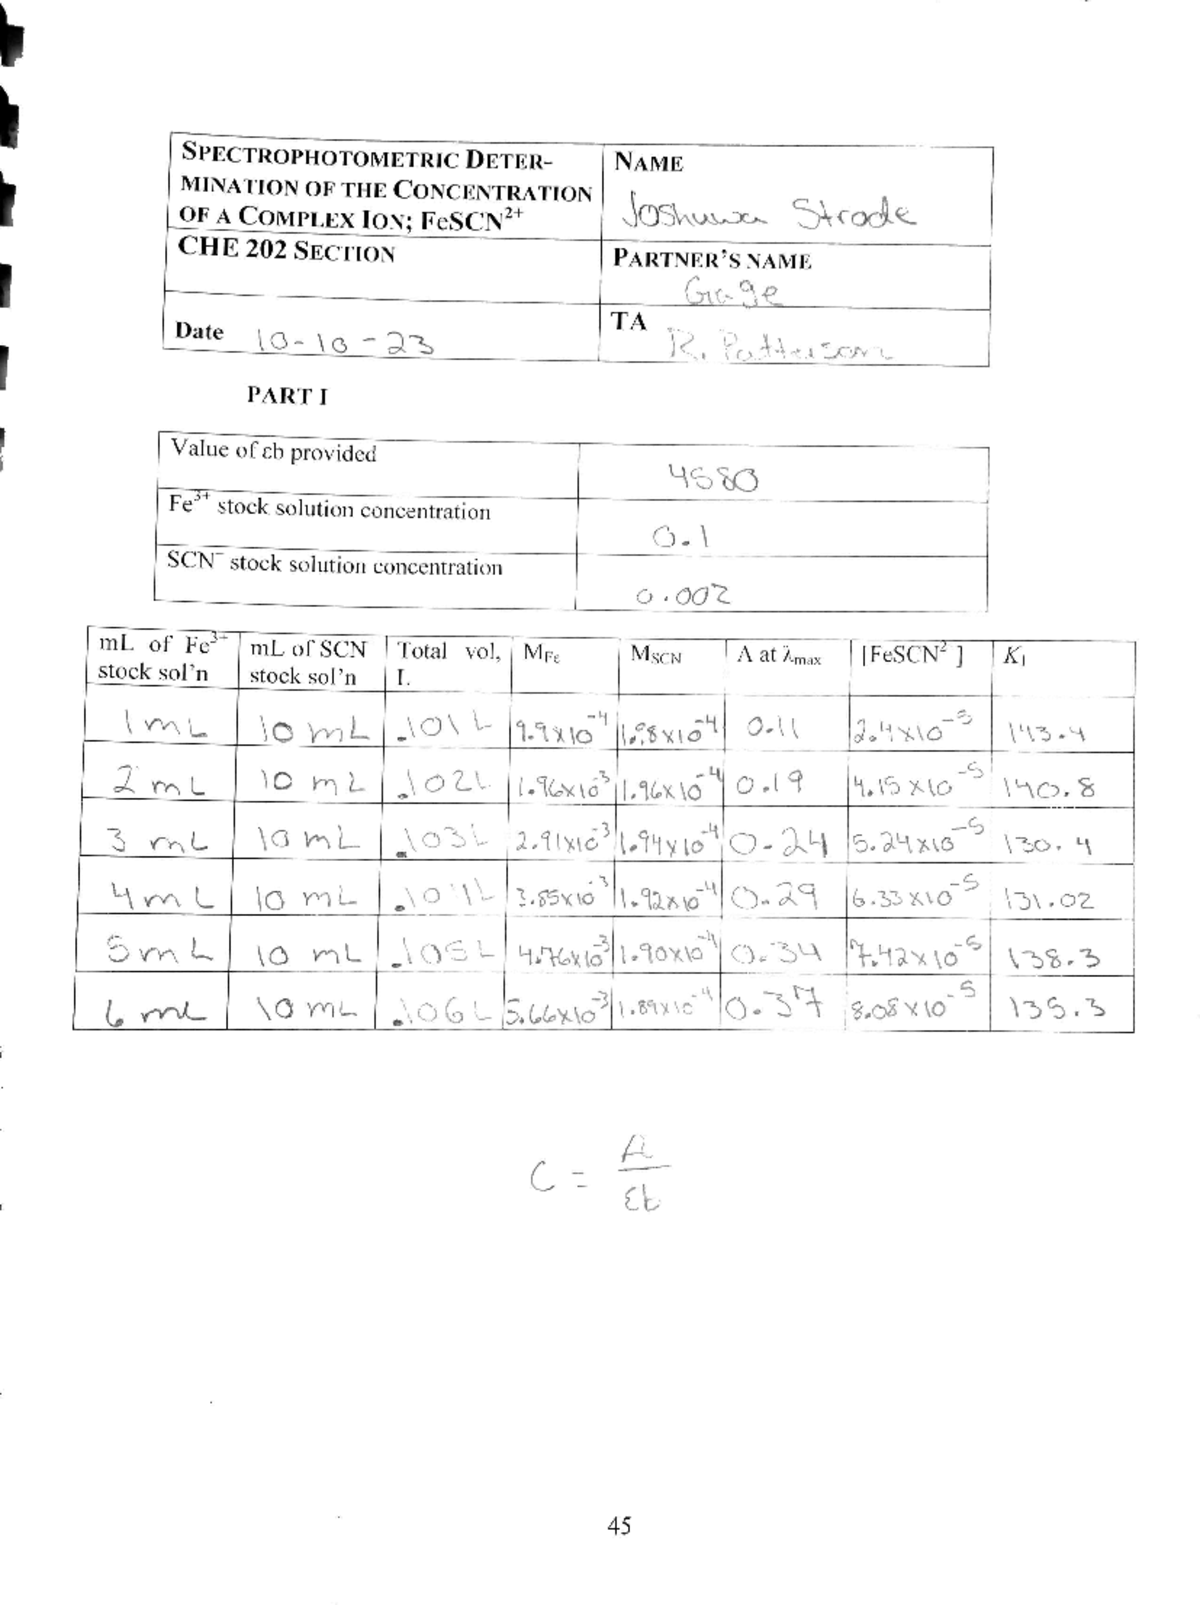 SPECTROPHOTOMETRIC DETER-
MINATION OF THE CONCENTRATION
OF A COMPLEX ION; FeSCN²⁺
NAME
Joshuwa Strode
CHE 202 SECTION
PARTNER'S NAME
Gage
Date 10-10-23
TA R. Patterson
PART I
Value of εb provided 4580
Fe³⁺ stock solution concentration 0.1
SCN⁻ stock solution concentration 0.002
mL of Fe³⁺ stock sol'n | mL of SCN stock sol'n | Total vol, L | M_Fe | M_SCN | A at λmax | [FeSCN²⁻] | K₁
1 mL | 10 mL | .101 L | 9.9x10⁻⁴ | 1.98x10⁻⁴ | 0.11 | 2.4x10⁻⁵ | 143.4
2 mL | 10 mL | .102L | 1.96x10⁻³ | 1.96x10⁻⁴ | 0.19 | 4.15x10⁻⁵ | 140.8
3 mL | 10 mL | .103L | 2.91x10⁻³ | 1.94x10⁻⁴ | 0.24 | 5.24x10⁻⁵ | 130.4
4 mL | 10 mL | .104L | 3.85x10⁻³ | 1.92x10⁻⁴ | 0.29 | 6.33x10⁻⁵ | 131.02
5 mL | 10 mL | .105L | 4.76x10⁻³ | 1.90x10⁻⁴ | 0.34 | 7.42x10⁻⁵ | 138.3
6 mL | 10 mL | .106L | 5.66x10⁻³ | 1.89x10⁻⁴ | 0.37 | 8.08x10⁻⁵ | 135.3
C = A
εb
45